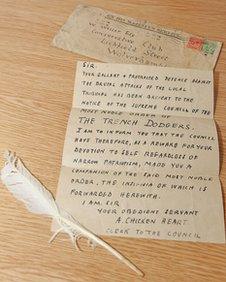 Conservative Club
Lichfield Street
Wolverhampton
SIR.
YOUR GALLANT & PROLONGED DEFENCE AGAINST
THE BRUTAL ATTACKS OF THE LOCAL
TRIBUNAL HAS BEEN BROUGHT TO THE
NOTICE OF THE SUPREME COUNCIL OF THE
MOST NOBLE ORDER OF
THE TRENCH DODGERS.
I AM TO INFORM YOU THAT THE COUNCIL
HAVE THEREFORE, AS A REWARD FOR YOUR
DEVOTION TO SELF REGARDLESS OF
NARROW PATRIOTISM, MADE YOU A
COMPANION OF THE SAID MOST NOBLE
ORDER, THE INSIGNIA OF WHICH IS
FORWARDED HEREWITH.
I AM SIR
YOUR OBEDIENT SERVANT
A. CHICKEN HEART.
CLERK TO THE COUNCIL